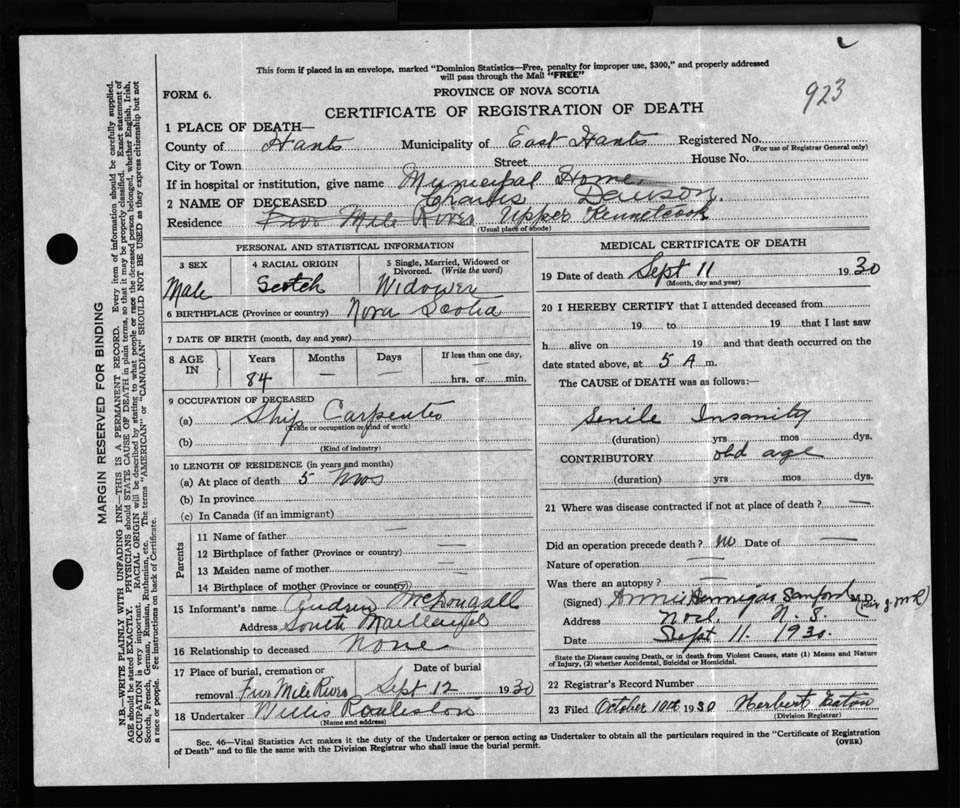 This form if placed in an envelope, marked "Dominion Statistics—Free, penalty for improper use, $300," and properly addressed
will pass through the Mail "FREE"
923
FORM 6.
PROVINCE OF NOVA SCOTIA
CERTIFICATE OF REGISTRATION OF DEATH
1 PLACE OF DEATH—
County of Hants Municipality of East Hants Registered No.
(For use of Registrar General only)
City or Town Street House No.
If in hospital or institution, give name Municipal Home
2 NAME OF DECEASED Charles Dawson
Residence Five Mile River Upper Kennetcook
(Usual place of abode)
MARGIN RESERVED FOR BINDING
N.B.—WRITE PLAINLY WITH UNFADING INK—THIS IS A PERMANENT RECORD. Every item of information should be carefully supplied.
AGE should be stated EXACTLY. PHYSICIANS should STATE CAUSE OF DEATH in plain terms, so that it may be properly classified. Exact statement of
OCCUPATION is very important. RACIAL ORIGIN will be described by stating to what people or race the deceased person belonged, whether English, Irish,
Scotch, French, German, Russian, Ruthenian, etc. The terms "AMERICAN" or "CANADIAN" SHOULD NOT BE USED as they express citizenship but not
a race or people. See instructions on back of Certificate.
PERSONAL AND STATISTICAL INFORMATION
3 SEX 4 RACIAL ORIGIN 5 Single, Married, Widowed or
Divorced. (Write the word)
Male Scotch Widower
6 BIRTHPLACE (Province or country) Nova Scotia
7 DATE OF BIRTH (month, day and year)
8 AGE IN Years Months Days If less than one day,
84 — — hrs. or min.
9 OCCUPATION OF DECEASED
(a) Ship Carpenter
(Trade or occupation or kind of work)
(b)
(Kind of industry)
10 LENGTH OF RESIDENCE (in years and months)
(a) At place of death 5 mos
(b) In province
(c) In Canada (if an immigrant)
Parents
11 Name of father —
12 Birthplace of father (Province or country) —
13 Maiden name of mother —
14 Birthplace of mother (Province or country) —
15 Informant's name Andrew McDougall
Address South Maitland
16 Relationship to deceased None
17 Place of burial, cremation or Date of burial
removal Five Mile River Sept 12 1930
18 Undertaker Willis
(Name and address)
MEDICAL CERTIFICATE OF DEATH
19 Date of death Sept 11 1930
(Month, day and year)
20 I HEREBY CERTIFY that I attended deceased from
19 to 19 that I last saw
h alive on 19 and that death occurred on the
date stated above, at 5 A m.
The CAUSE of DEATH was as follows:—
Senile Insanity
(duration) yrs mos dys.
CONTRIBUTORY old age
(duration) yrs mos dys.
21 Where was disease contracted if not at place of death? —
Did an operation precede death? no Date of —
Nature of operation —
Was there an autopsy? —
(Signed) Annie Hennigar Sanford M.D.
Address N.S.
Date Sept 11. 1930.
State the Disease causing Death, or in death from Violent Causes, state (1) Means and Nature
of Injury, (2) whether Accidental, Suicidal or Homicidal.
22 Registrar's Record Number
23 Filed October 10th 1930 Herbert Eaton
(Division Registrar)
Sec. 46—Vital Statistics Act makes it the duty of the Undertaker or person acting as Undertaker to obtain all the particulars required in the "Certificate of Registration
of Death" and to file the same with the Division Registrar who shall issue the burial permit.
(OVER)